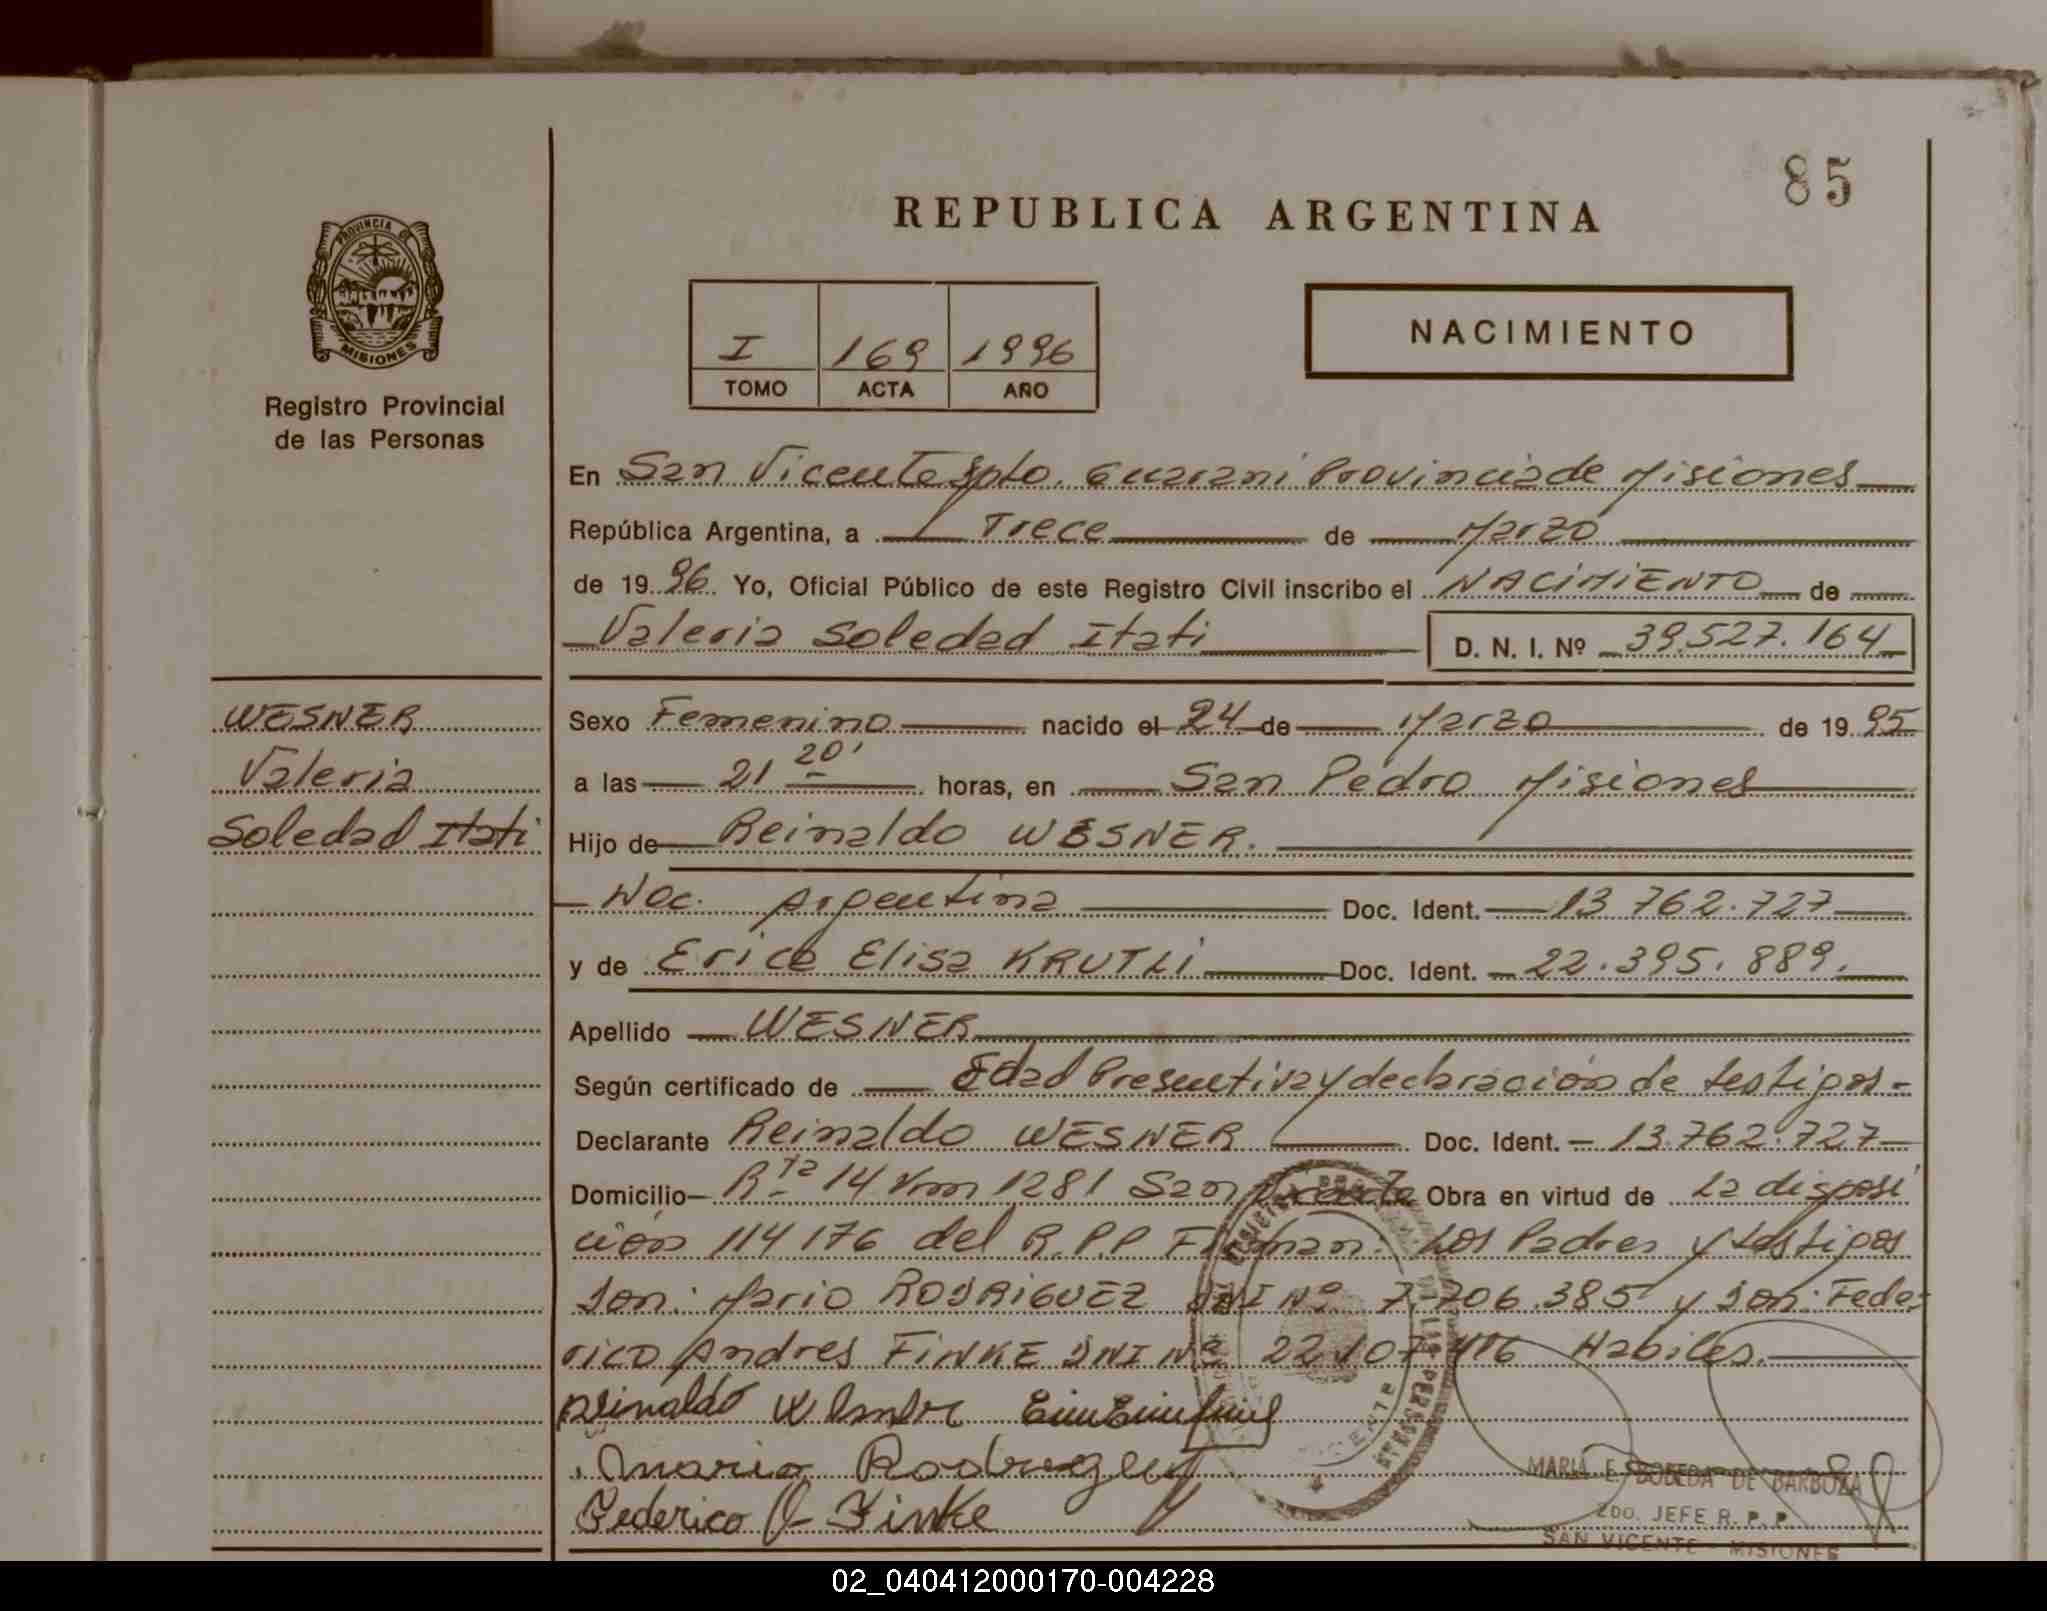 85
REPUBLICA ARGENTINA
PROVINCIA DE
MISIONES
Registro Provincial
de las Personas
I 169 1996
TOMO ACTA AÑO
NACIMIENTO
En San Vicente Dpto. Guarani Provincia de Misiones
República Argentina, a Trece de Marzo
de 1996 Yo, Oficial Público de este Registro Civil inscribo el NACIMIENTO de
Valeria Soledad Itati D. N. I. Nº 39.527.164
WESNER
Valeria
Soledad Itati
Sexo Femenino nacido el 24 de Marzo de 1995
a las 21 20' horas, en San Pedro Misiones
Hijo de Reinaldo WESNER.
Nac. Argentina Doc. Ident. 13.762.727
y de Erica Elisa KRUTLI Doc. Ident. 22.395.889.
Apellido WESNER
Según certificado de Edad Presuntiva y declaración de testigos-
Declarante Reinaldo WESNER Doc. Ident. 13.762.727
Domicilio Rta 14 Km 1281 San Vicente Obra en virtud de La disposi
ción 114176 del R.P.P Firman: Los Padres y testigos
son: Mario RODRIGUEZ DNI Nº 7.206.385 y son: Fede
rico Andres FINKE DNI Nº 22.107.416 Habiles.
Reinaldo
Mario Rodriguez
Federico A Finke
SAN VICENTE
MARIA E. BOBEDA DE BARBOZA
2DO. JEFE R. P. P.
SAN VICENTE - MISIONES
02_040412000170-004228